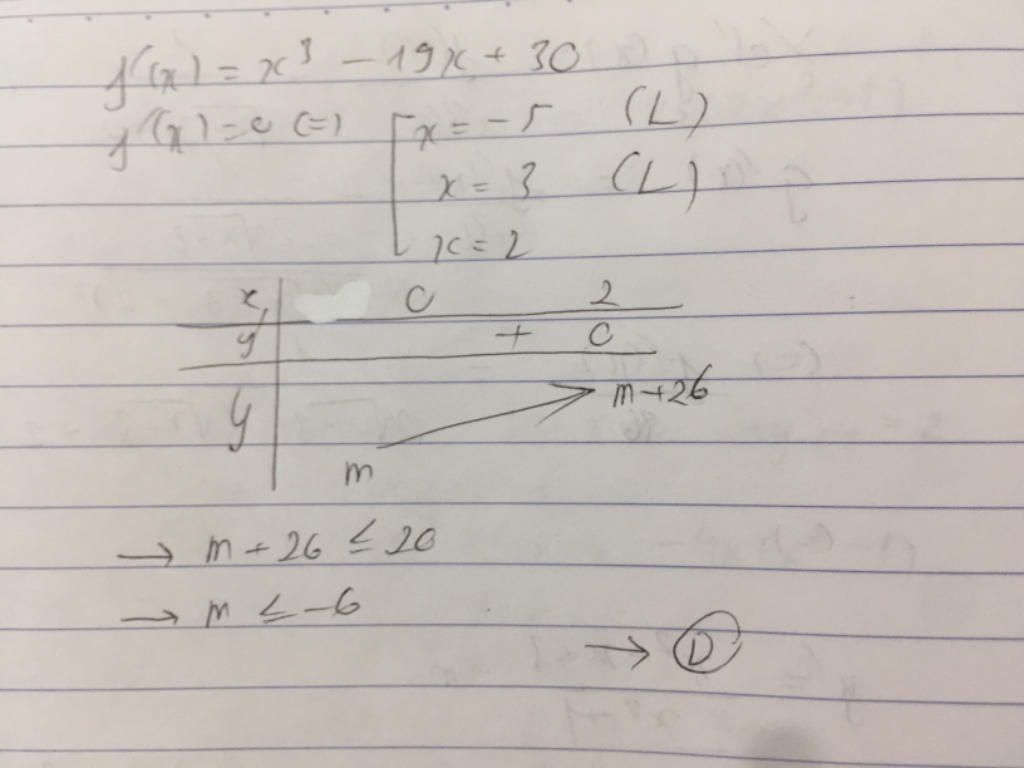 f'(x) = x³ - 19x + 30
f'(x) = 0 (=) [ x = -5 (L)
x = 3 (L)
x = 2
x 0 2
y' + 0
y m m+26
→ m + 26 ≤ 20
→ m ≤ -6
→ D